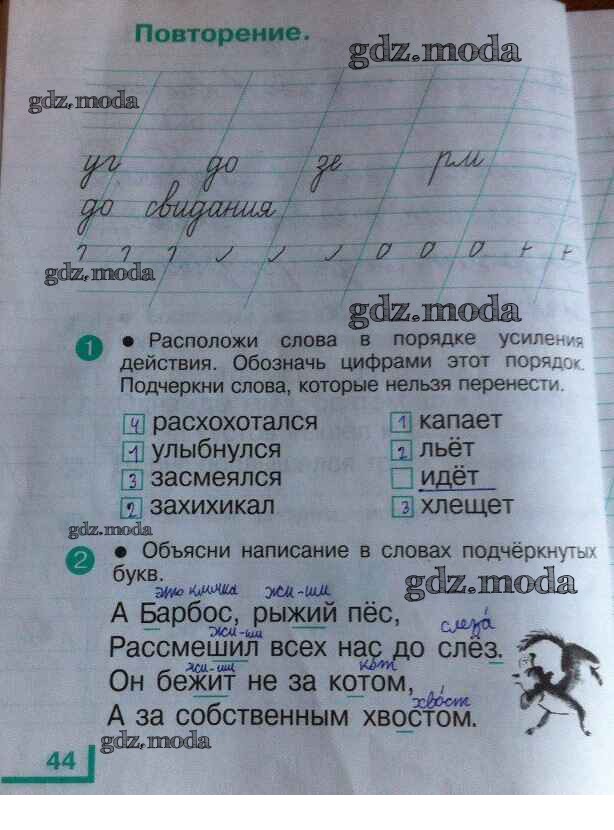 Повторение.
gdz.moda
gdz.moda
уг до зе рм
до свидания
gdz.moda
gdz.moda
1 • Расположи слова в порядке усиления
действия. Обозначь цифрами этот порядок.
Подчеркни слова, которые нельзя перенести.
4 расхохотался 1 капает
1 улыбнулся 2 льёт
3 засмеялся идёт
2 захихикал 3 хлещет
gdz.moda
2 • Объясни написание в словах подчёркнутых
букв.
gdz.moda
это кличка жи-ши
А Барбос, рыжий пёс,
жи-ши слеза́
Рассмешил всех нас до слёз.
жи-ши кот
Он бежит не за котом,
хвост
А за собственным хвостом.
gdz.moda
44